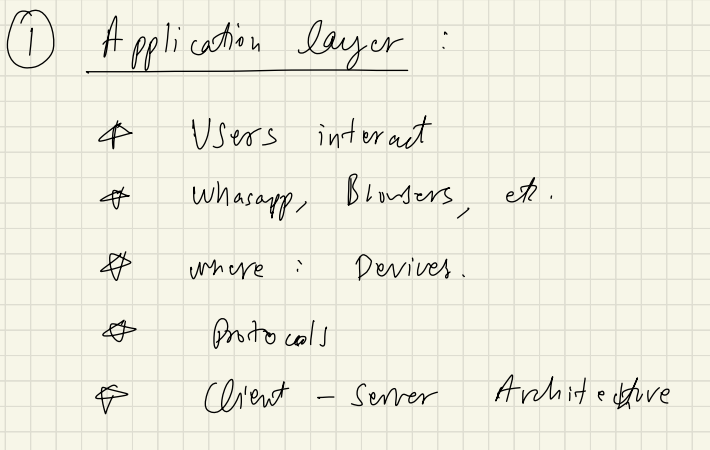 ① Application layer :
Users interact
Whasapp, Browsers, etc.
where : Devives.
Protocols
Client - Server Architecture